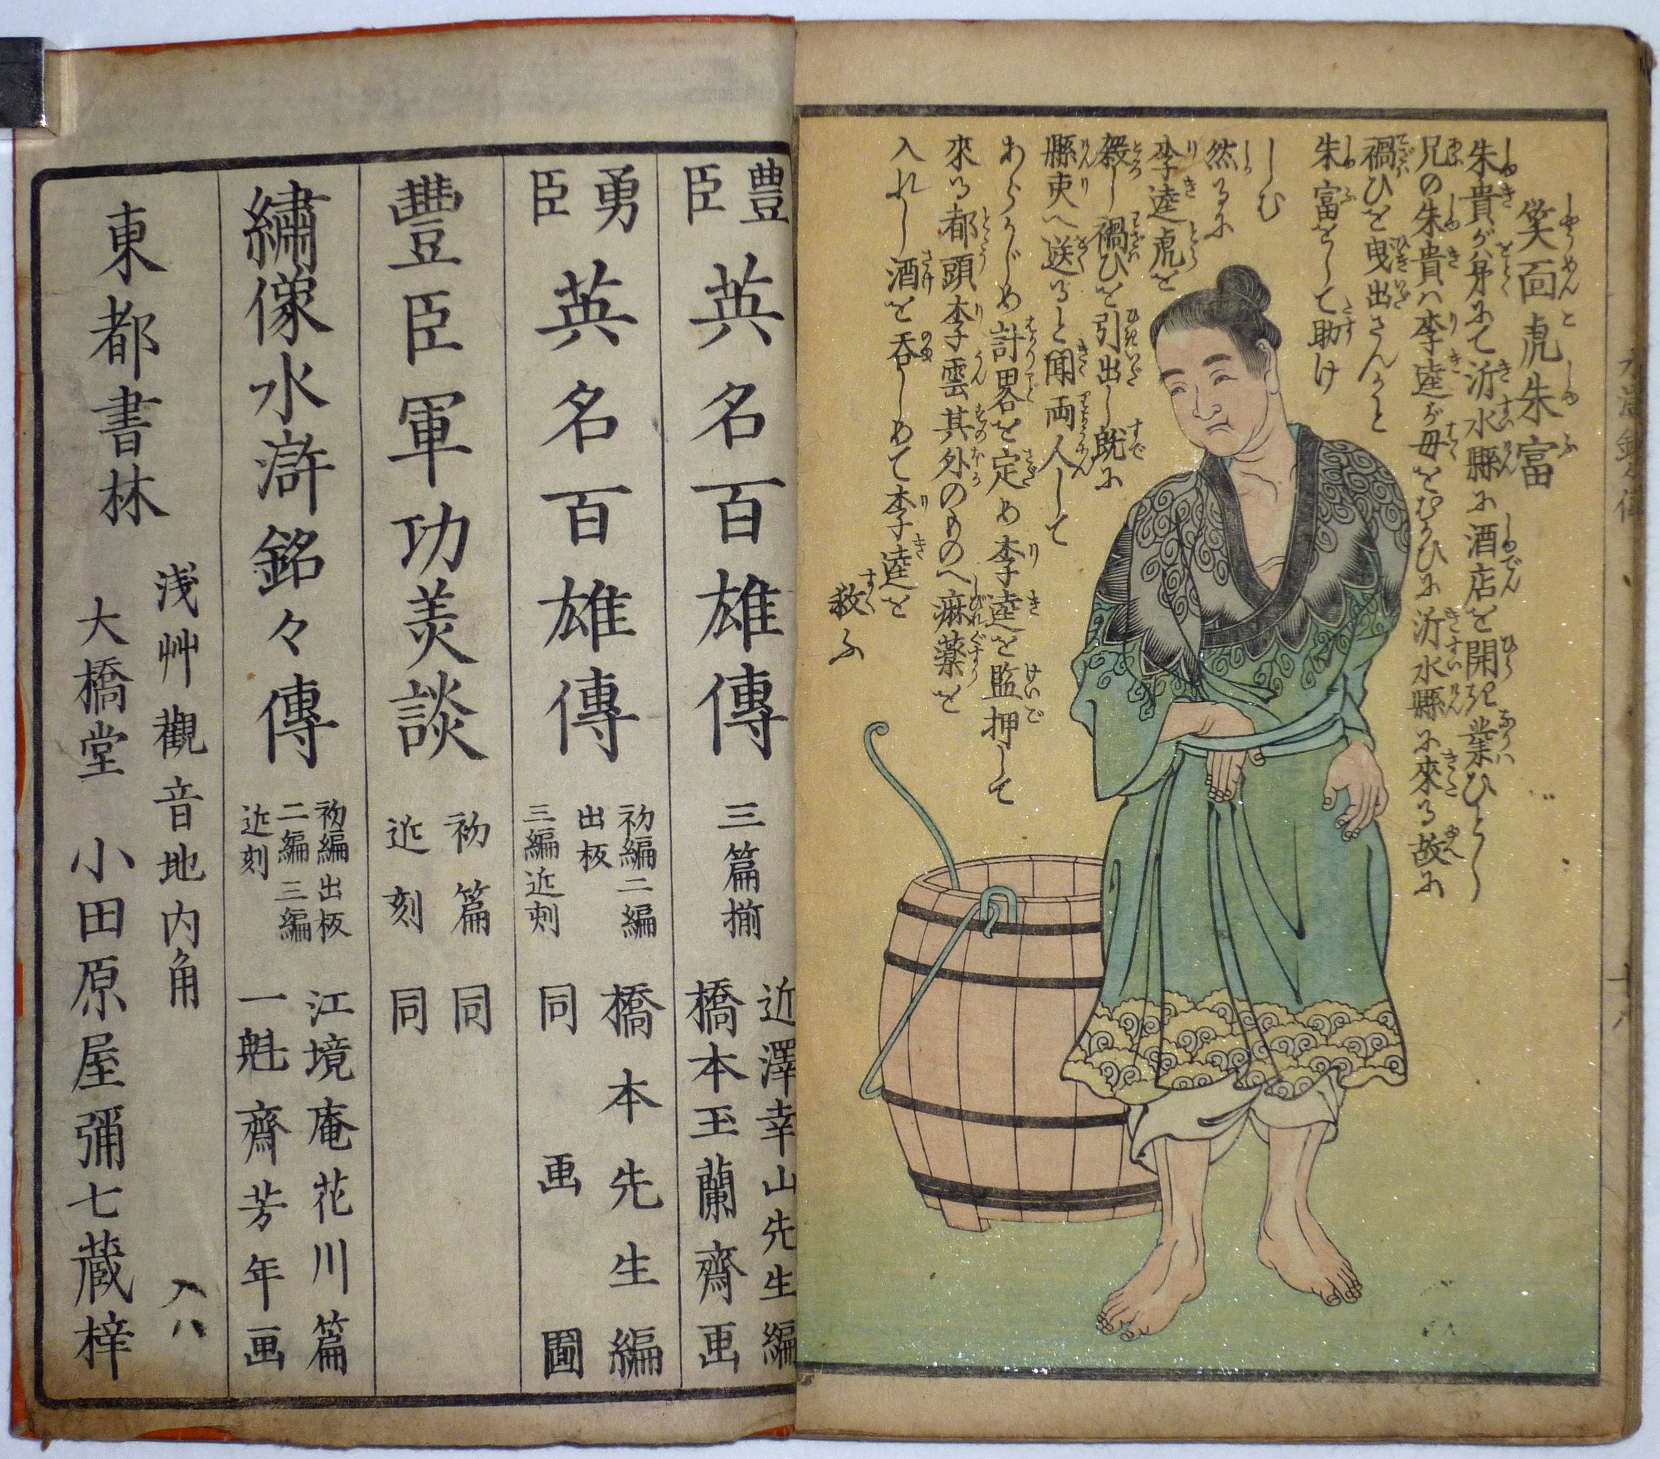 笑面虎朱富
朱貴が弟にて沂水縣に酒店を開き業ひとし
兄の朱貴は李逵が母をむかひに沂水縣に來る故に
禍ひを曳出さんかと
朱富をして助け
しむ
然るに
李逵虎を
殺し禍ひを引出し既に
縣吏へ送ると聞両人して
あらかじめ計畧を定め李逵を監押して
來る都頭李雲其外のものへ麻薬を
入れし酒を呑しめて李逵を
救ふ
豊臣英名百雄傳 三篇揃 近澤幸山先生編 橋本玉蘭齋画
勇臣英名百雄傳 初編二編出板 三編近刻 橋本先生編 同画圖
豐臣軍功美談 初篇近刻 同 同
繡像水滸銘々傳 初編出板 二編三編近刻 江境庵花川篇 一魁齋芳年画
淺艸觀音地内角
東都書林 大橋堂 小田原屋彌七藏梓